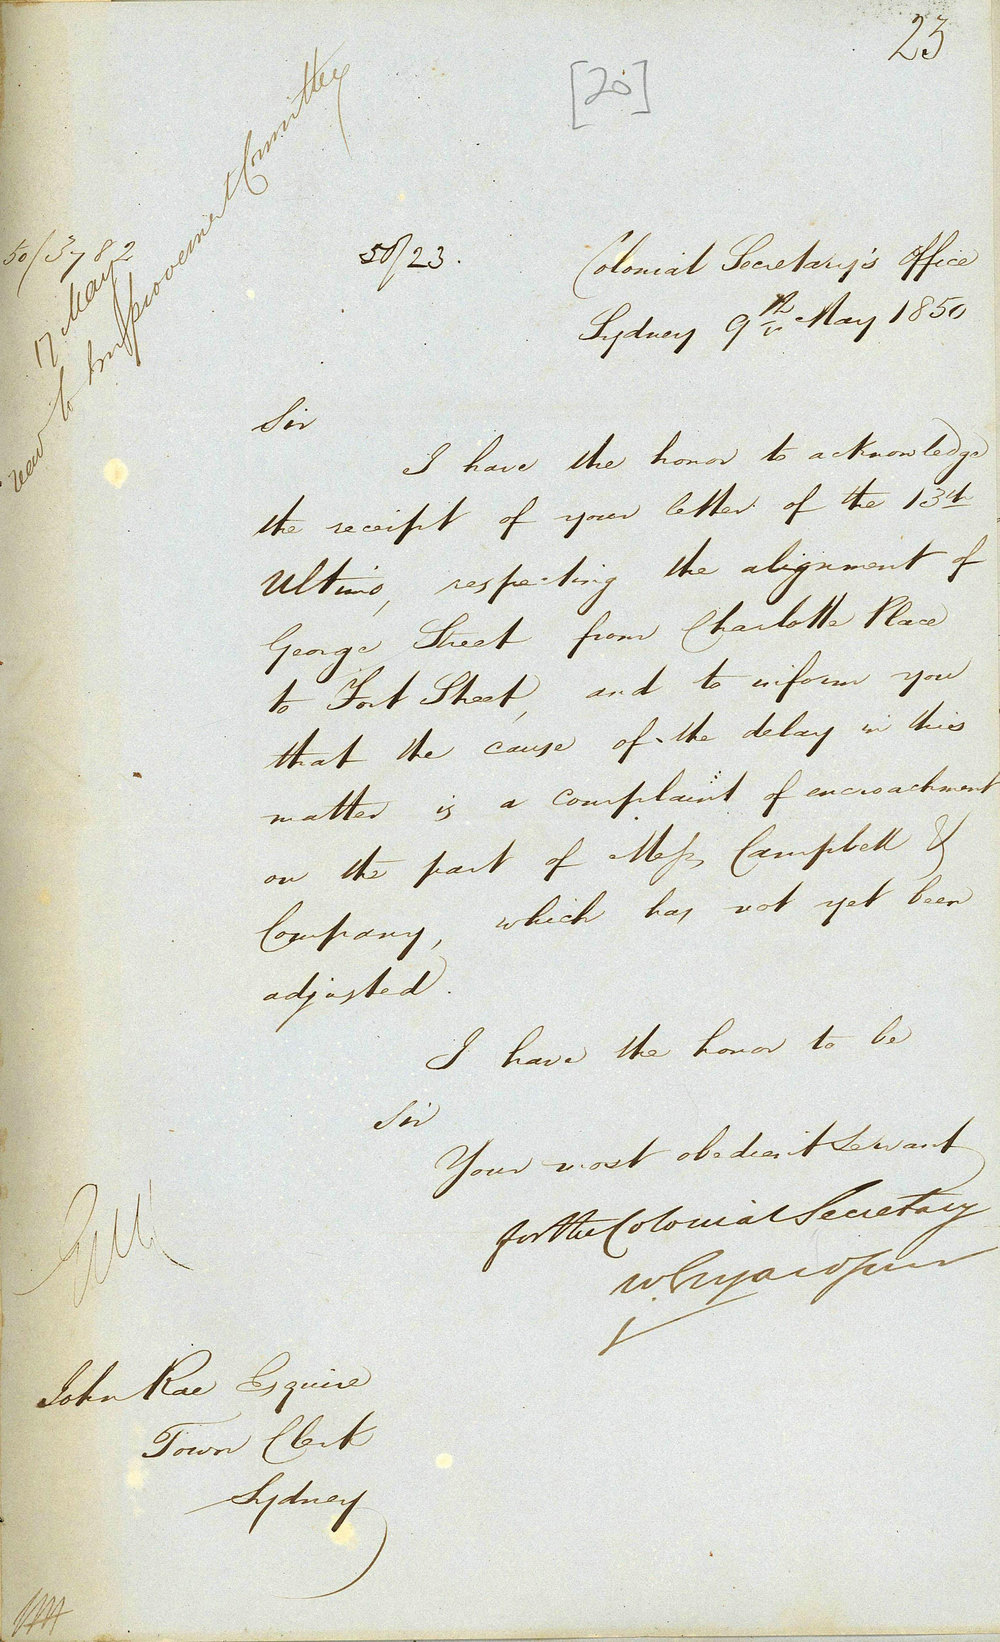 23
[20]
50/3782
17 May
read to Improvement Committee
50/23.
Colonial Secretary's Office
Sydney 9th May 1850
Sir
I have the honor to acknowledge
the receipt of your letter of the 13th
Ultimo, respecting the alignment of
George Street from Charlotte Place
to Fort Street, and to inform you
that the cause of the delay in this
matter is a complaint of encroachment
on the part of Messrs Campbell &
Company, which has not yet been
adjusted.
I have the honor to be
Sir
Your most obedient Servant
for the Colonial Secretary
W.
John Rae Esquire
Town Clerk
Sydney